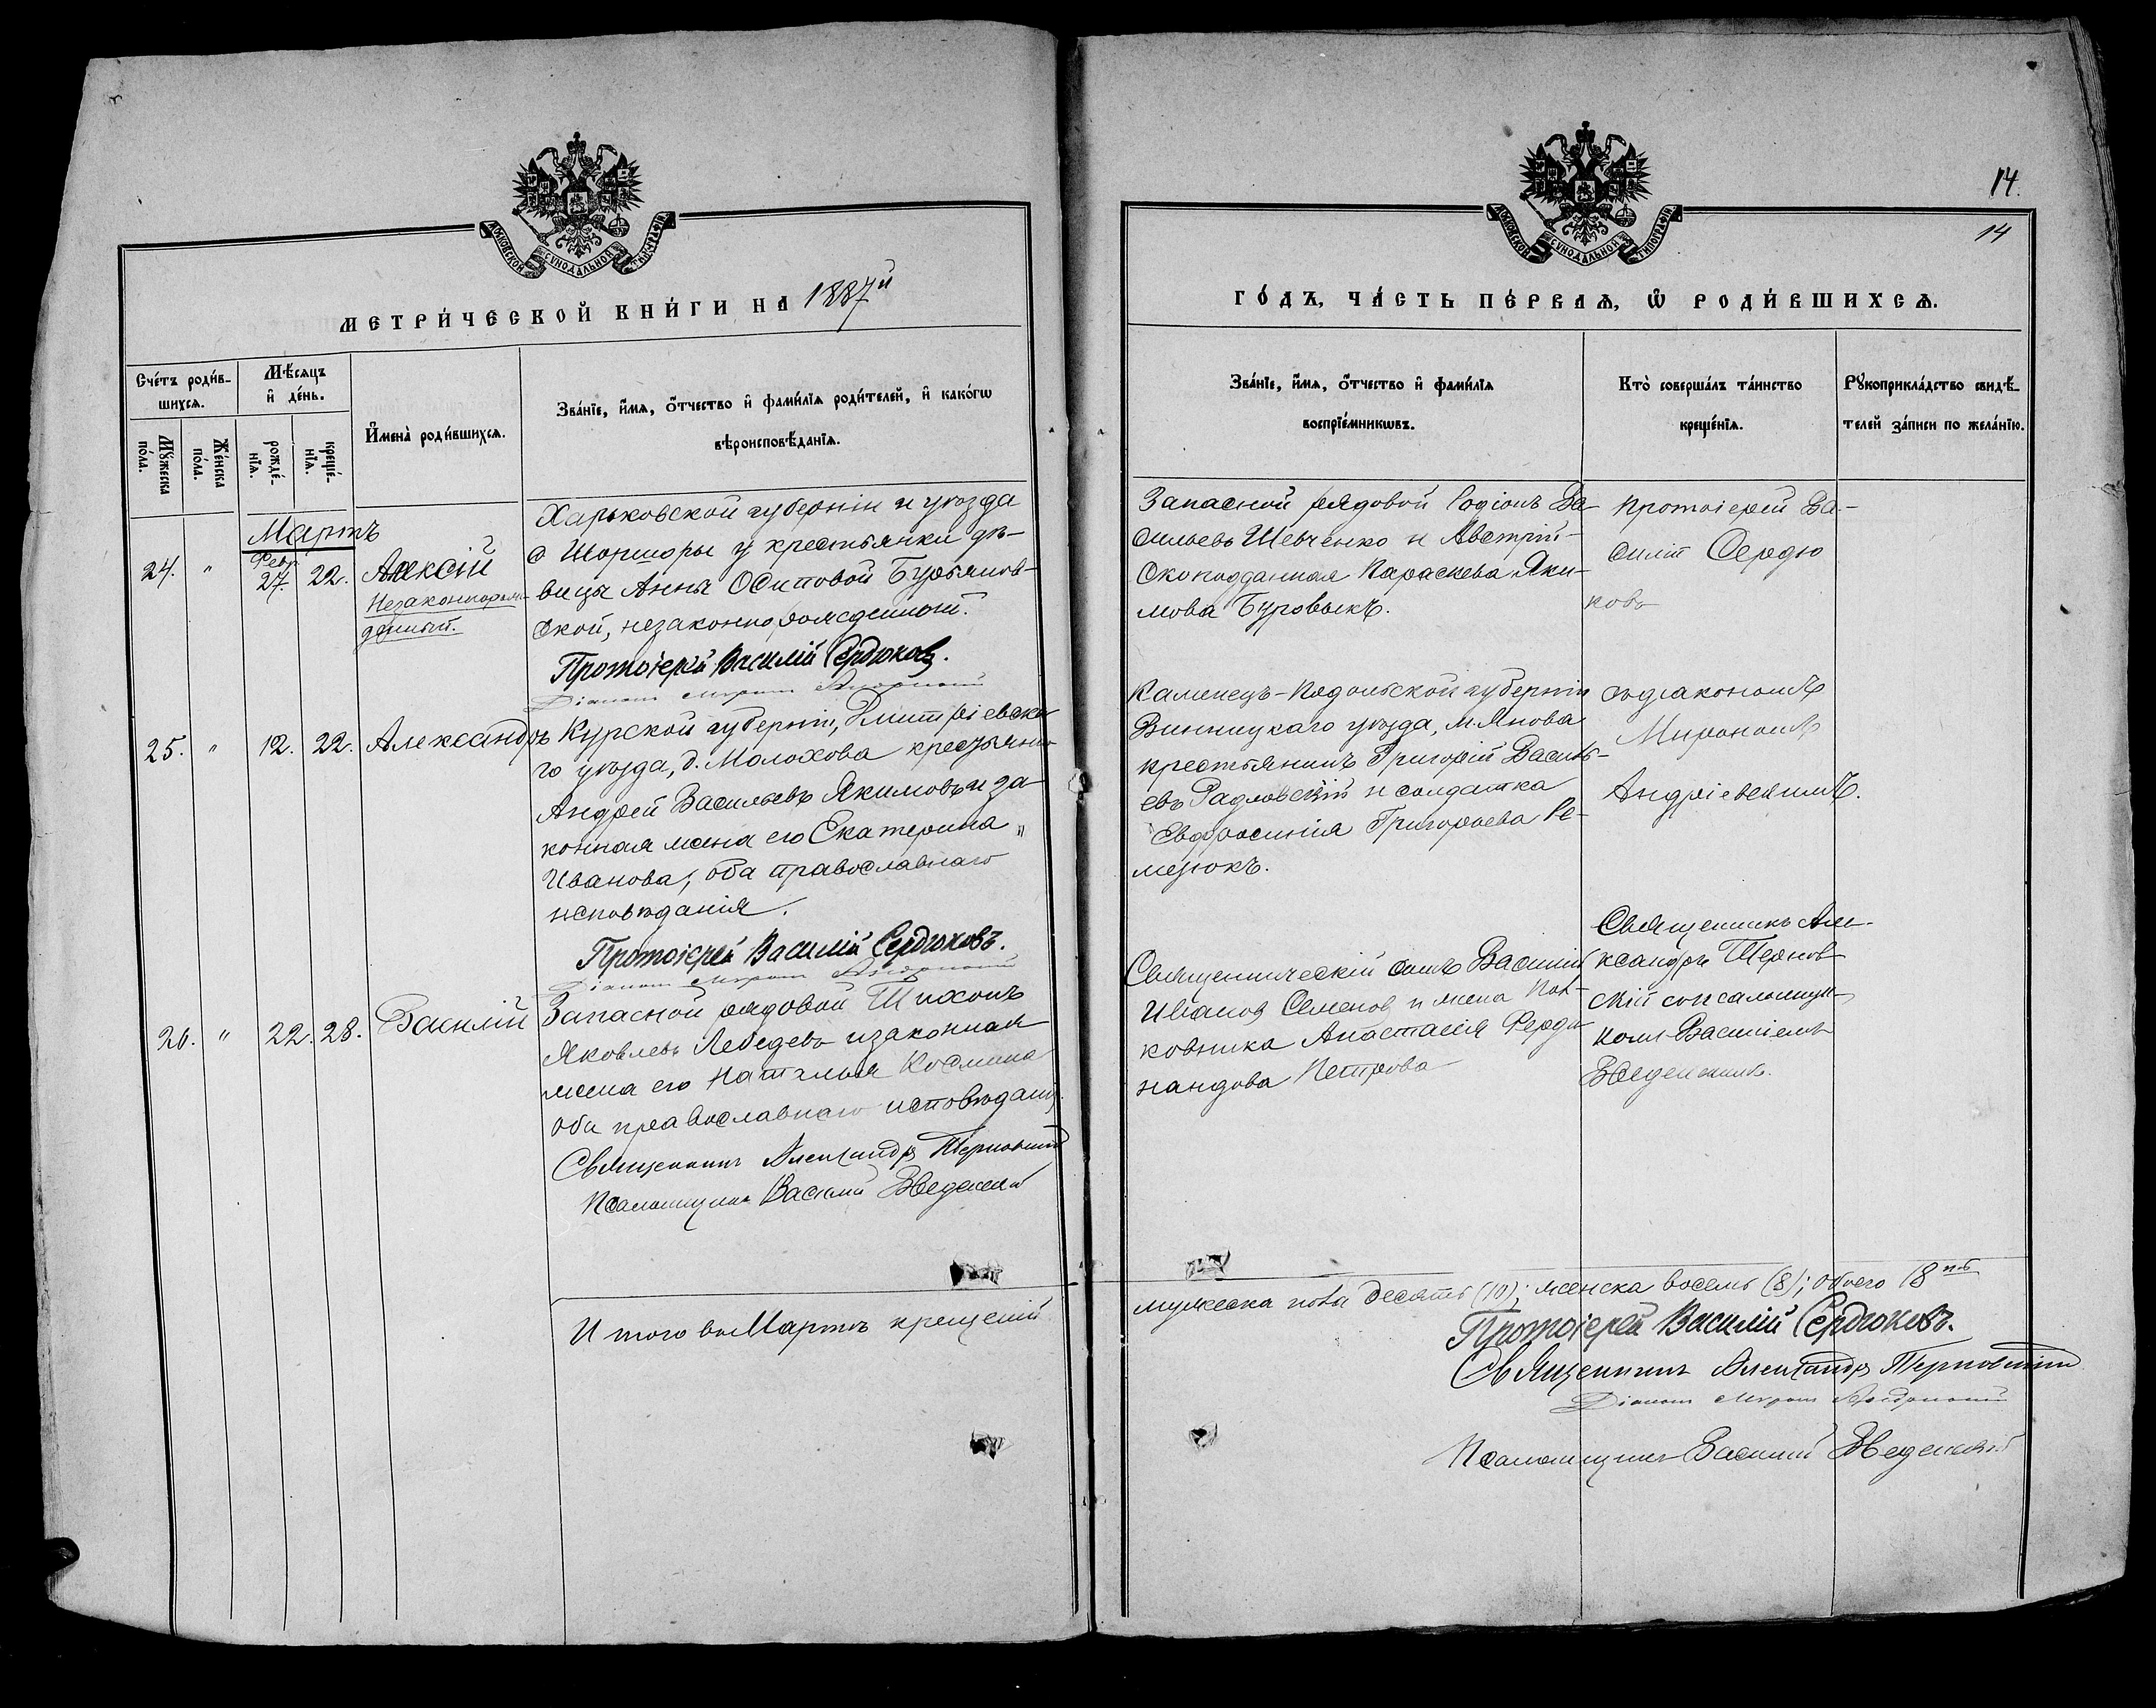 14.
14
МОСКОВСКОЙ СУНОДАЛЬНОЙ ТИПОГРАФІИ
МЕТРИ́ЧЕСКОЙ КНИ́ГИ НА 1887й
Сче́тъ роди́в-
шихсѧ.
Мѣ́сѧцъ
и҆ де́нь.
Мꙋ́жеска
по́ла.
Же́нска
по́ла.
рожде́-
нїѧ.
креще́-
нїѧ.
И҆мена̀ роди́вшихсѧ.
Зва́нїе, и҆́мѧ, ѻ҆́тчество и҆ фами́лїѧ роди́телей, и҆ како́гѡ
вѣроисповѣ́данїѧ.
Мартъ
24. " Февр. 27. 22. Алексій
Незаконнорож-
денный.
Харьковской губерніи и уѣзда
с Шоршоры у крестьянки дѣ-
вицы Анны Осиповой Бурьянов-
ской, незаконнорожденный.
Протоіерей Василій Сердюковъ.
Діаконъ Миронъ
25. " 12. 22. Александръ
Курской губерніи, Дмитріевска-
го уѣзда, д. Молохова крестьянинъ
Андрей Васильевъ Якимовъ и за-
конная жена его Екатерина
Иванова, оба православнаго
исповѣданія.
Протоіерей Василій Сердюковъ.
Діаконъ Миронъ
26. " 22. 28. Василій
Запасной рядовой Тихонъ
Яковлевъ Лебедевъ и законная
жена его Наталья Космина
оба православнаго исповѣданія.
Священникъ Александръ Терновскій
Псаломщикъ Василій Введенскій
И того въ Мартѣ крещеній
МОСКОВСКОЙ СУНОДАЛЬНОЙ ТИПОГРАФІИ
ГО́ДЪ, ЧА́СТЬ ПЕ́РВАѦ, Ѽ РОДИ́ВШИХСѦ.
Зва́нїе, и҆́мѧ, ѻ҆́тчество и҆ фами́лїѧ
воспрїе́мникѡвъ.
Кто̀ соверша́лъ та́инство
креще́нїѧ.
Рꙋкоприкла́дство свидѣ́-
телей за́писи по жела́нїю.
Запасной рядовой Родіонъ Ва-
сильевъ Шевченко и Австрій-
скоподданная Параскева Яки-
мова Буровыкъ.
Протоіерей Ва-
силій Сердю
ковъ
Каменецъ-Подольской губерніи
Винницкаго уѣзда, м. Янова
крестьянинъ Григорій Василь-
евъ Радловскій и солдатка
Евфросинія Григорьева Ре-
мезюкъ.
съ діакономъ
Мирономъ
Андріевскимъ.
Священническій сынъ Василій
Ивановъ Семеновъ и жена Пол-
ковника Анастасія Ферди-
нандова Петрова
Священникъ Але-
ксандръ Тернов-
скій съ псаломщи-
комъ Василіемъ
Введенскимъ.
мужеска пола десять (10); женска восемь (8); обоего 18ть
Протоіерей Василій Сердюковъ.
Священникъ Александръ Терновскій
Діаконъ Миронъ
Псаломщикъ Василій Введенскій